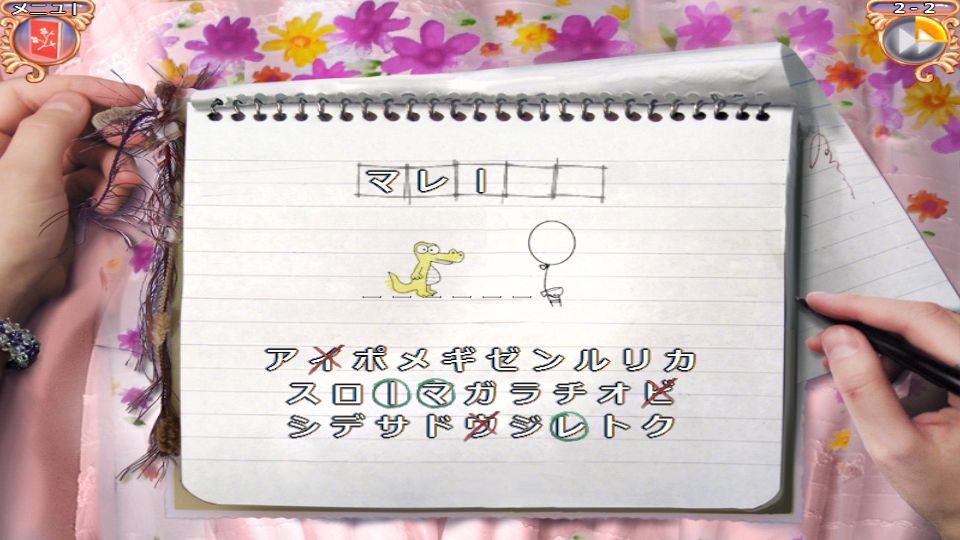 メニュー 2-2
マレー
アイポメギゼンルリカ
スローマガラチオビ
シデサドウジレトク